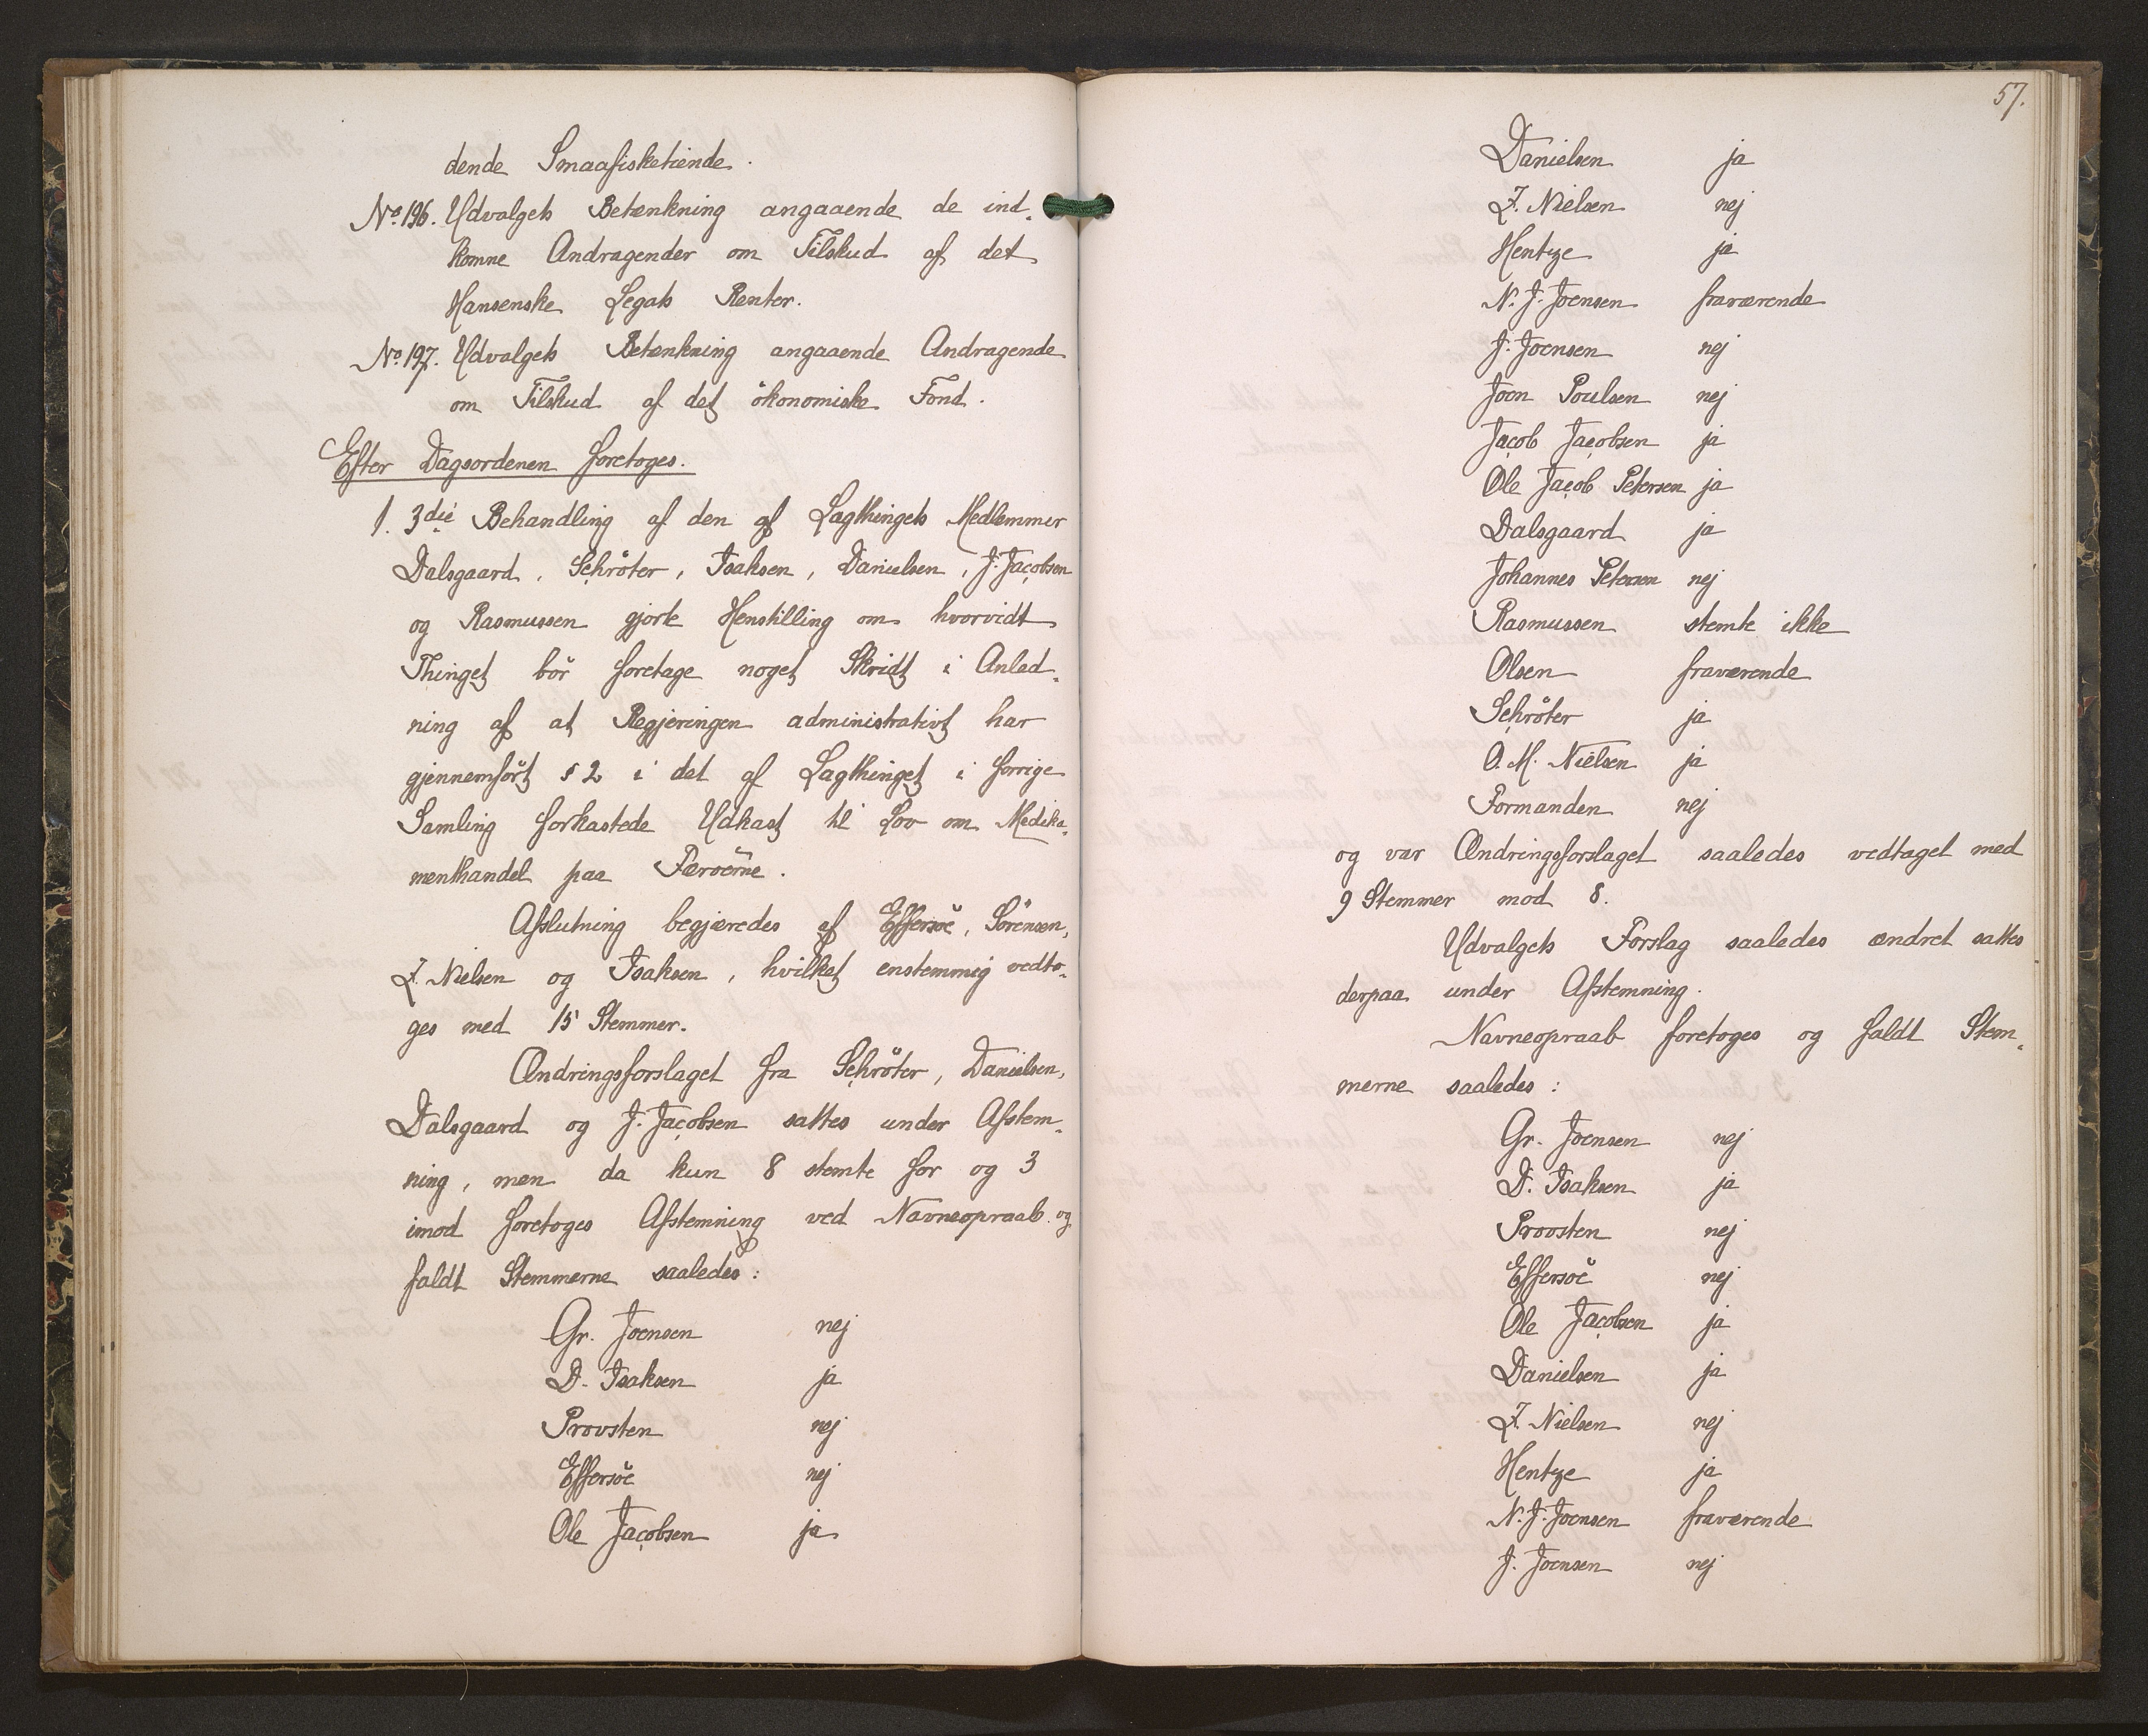 dende Smaafisketiende.
No. 196. Udvalgets Betænkning angaaende de ind-
komne Andragender om Tilskud af det
Hansenske Legats Renter.
No. 197. Udvalgets Betænkning angaaende Andragende
om Tilskud af det ökonomiske Fond.
Efter Dagsordenen foretoges.
1. 3die Behandling af den af Lagthingets Medlemmer
Dalsgaard, Schröter, Isaksen, Danielsen, J. Jacobsen
og Rasmussen gjorte Henstilling om hvorvidt
Thinget bör foretage noget Skridt i Anled-
ning af at Regjeringen administrativt har
gjennemfört § 2 i det af Lagthinget i forrige
Samling forkastede Udkast til Lov om Medika-
menthandel paa Færöerne.
Afslutning begjæredes af Effersöe, Sörensen,
Z. Nielsen og Isaksen, hvilket enstemmig vedto-
ges med 15 Stemmer.
Ændringsforslaget fra Schröter, Danielsen,
Dalsgaard og J. Jacobsen sattes under Afstem-
ning, men da kun 8 stemte for og 3
imod foretoges Afstemning ved Navneopraab og
faldt Stemmerne saaledes:
Gr. Joensen nej
D. Isaksen ja
Provsten nej
Effersöe nej
Ole Jacobsen ja
57.
Danielsen ja
Z. Nielsen nej
Hentze ja
N. J. Joensen fraværende
J. Joensen nej
Joen Poulsen nej
Jacob Jacobsen ja
Ole Jacob Petersen ja
Dalsgaard ja
Johannes Petersen nej
Rasmussen stemte ikke
Olsen fraværende
Schröter ja
O. M. Nielsen ja
Formanden nej
og var Ændringsforslaget saaledes vedtaget med
9 Stemmer mod 8.
Udvalgets Forslag saaledes ændret sattes
derpaa under Afstemning.
Navneopraab foretoges og faldt Stem-
merne saaledes:
Gr. Joensen nej
D. Isaksen ja
Provsten nej
Effersöe nej
Ole Jacobsen ja
Danielsen ja
Z. Nielsen nej
Hentze ja
N. J. Joensen fraværende
J. Joensen nej